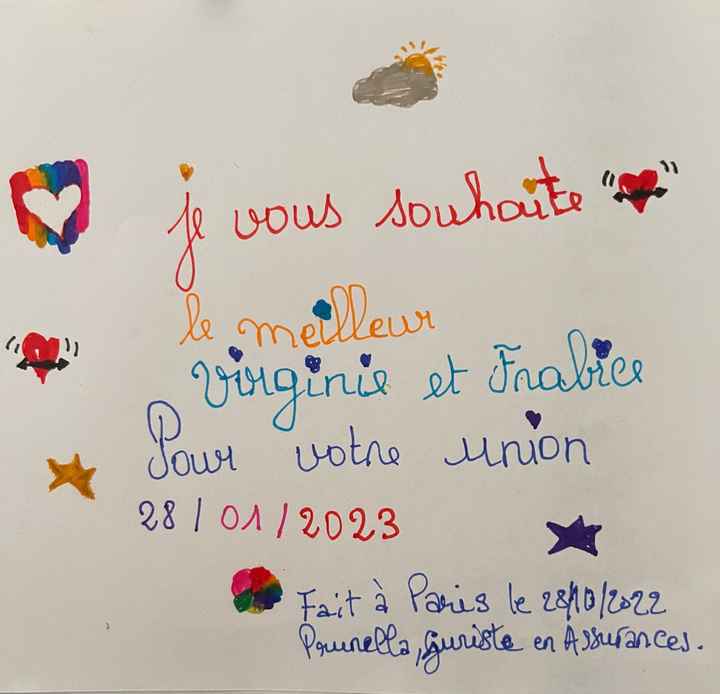 je vous souhaite
le meilleur
Virginie et Frabice
Pour votre union
28/01/2023
Fait à Paris le 28/10/2022
Prunella, juriste en Assurances.